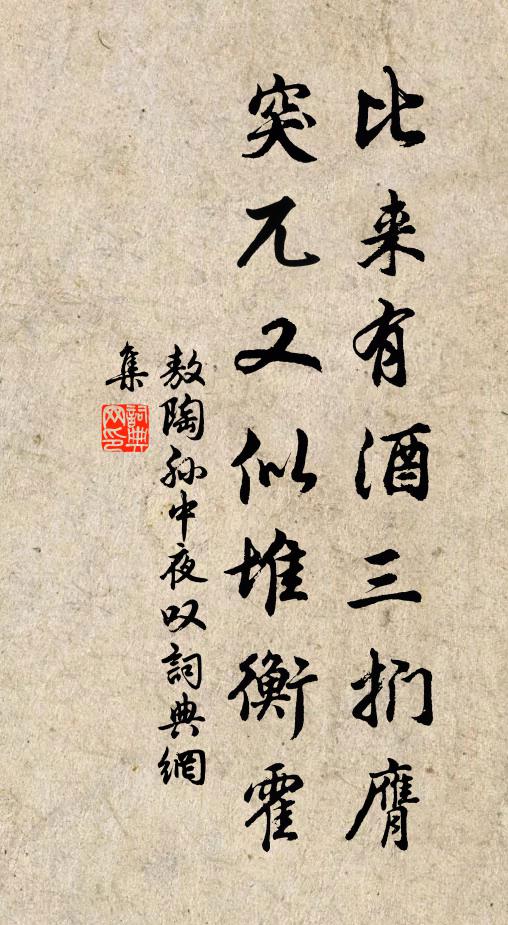 比来有酒三扪膺
突兀又似堆衡霍
敖陶孙中夜叹詞典網
集
詞典網印